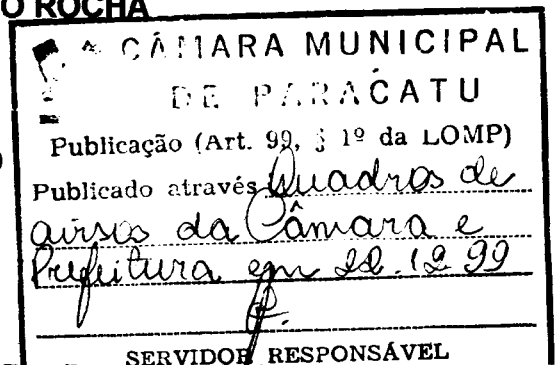 O ROCHA
CÂMARA MUNICIPAL
DE PARACATU
Publicação (Art. 99, § 1º da LOMP)
Publicado através Quadros de
avisos da Câmara e
Prefeitura em 12 99
SERVIDOR RESPONSÁVEL